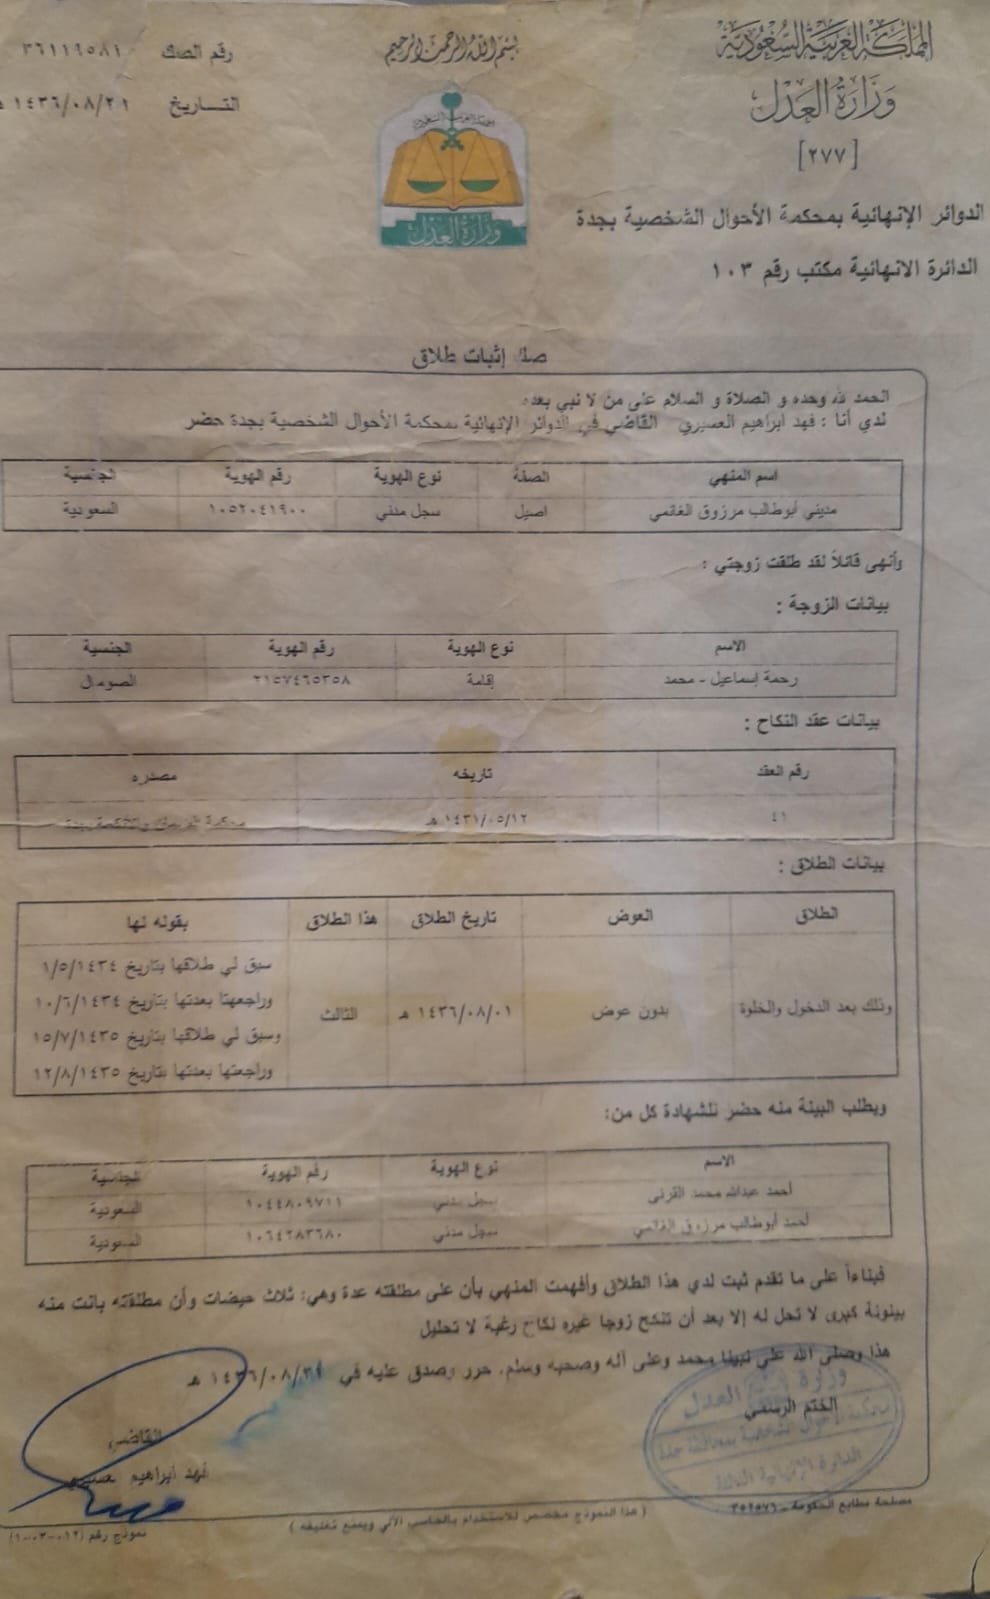 المملكة العربية السعودية
وزارة العدل
[٢٧٧]
الدوائر الإنهائية بمحكمة الأحوال الشخصية بجدة
الدائرة الانهائية مكتب رقم ١٠٣
بسم الله الرحمن الرحيم
وزارة العدل
رقم الصك ٣٦١١٩٥٨١
التاريخ ١٤٣٦/٠٨/٢١ هـ
صك إثبات طلاق
الحمد لله وحده و الصلاة و السلام على من لا نبي بعده
لدي أنا : فهد ابراهيم العسيري القاضي في الدوائر الإنهائية بمحكمة الأحوال الشخصية بجدة حضر
اسم المنهي الصفة نوع الهوية رقم الهوية الجنسية
مديني أبوطالب مرزوق الغانمي اصيل سجل مدني ١٠٥٢٠٤١٩٠٠ السعودية
وأنهى قائلاً لقد طلقت زوجتي :
بيانات الزوجة :
الاسم نوع الهوية رقم الهوية الجنسية
رحمة إسماعيل - محمد إقامة ٢١٥٧٤٦٥٢٥٨ الصومال
بيانات عقد النكاح :
رقم العقد تاريخه مصدره
٤١ ١٤٣١/٠٥/١٢ هـ محكمة بجدة
بيانات الطلاق :
الطلاق العوض تاريخ الطلاق هذا الطلاق بقوله لها
وذلك بعد الدخول والخلوة بدون عوض ١٤٣٦/٠٨/٠١ هـ الثالث
سبق لي طلاقها بتاريخ ١/٥/١٤٣٤
وراجعهتا بعدتها بتاريخ ١٠/٦/١٤٣٤
وسبق لي طلاقها بتاريخ ١٥/٧/١٤٣٥
وراجعتها بعدتها بتاريخ ١٢/٨/١٤٣٥
وبطلب البينة منه حضر للشهادة كل من:
الاسم نوع الهوية رقم الهوية الجنسية
أحمد عبدالله محمد القرني سجل مدني ١٠٤٤٨٠٩٧١١ السعودية
أحمد أبوطالب مرزوق الغانمي سجل مدني ١٠٦٤٢٨٣٦٨٠ السعودية
فبناءاً على ما تقدم ثبت لدي هذا الطلاق وأفهمت المنهي بأن على مطلقته عدة وهي: ثلاث حيضات وأن مطلقته بانت منه
بينونة كبرى لا تحل له إلا بعد أن تنكح زوجا غيره نكاح رغبة لا تحليل
هذا وصلى الله على نبينا محمد وعلى آله وصحبه وسلم. حرر وصدق عليه في ١٤٣٦/٠٨/٢١ هـ
الختم الرسمي
القاضي
فهد ابراهيم عسيري
وزارة العدل
محكمة الأحوال الشخصية بمحافظة جدة
الدائرة الإنهائية الثالثة
مصلحة مطابع الحكومة - ٣٥٢٥٧٦
( هذا النموذج مخصص للاستخدام بالحاسب الآلي ويمنع تغليفه )
نموذج رقم (١٢-٠٣-٠١)